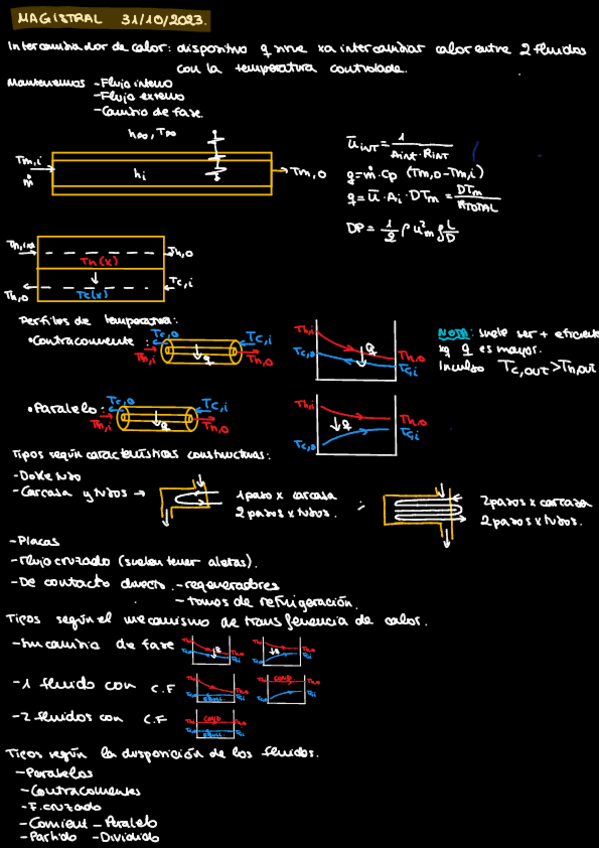 MAGISTRAL 31/10/2023.
Intercambiador de calor: dispositivo q sirve xa intercambiar calor entre 2 fluidos
con la temperatura controlada.
Mantenemos - Flujo interno
- Flujo externo
- Cambio de fase.
h∞, T∞
Tm,i
ṁ
hi
Tm,o
ūINT = 1 / AINT · RINT
q = ṁ · Cp (Tm,o - Tm,i)
q = ū · Ai · DTm = DTm / RTOTAL
DP = 1/2 ρ u²m f L/D
Th,o
Th(x)
Tc,i
Tc(x)
Perfiles de temperatura:
• Contracorriente:
Tc,o Tc,i
Th,i q Th,o
Th,i
Tc,o
q
Th,o
Tc,i
NOTA: suele ser + eficiente
xq q es mayor.
Incluso Tc,out > Th,out
• Paralelo:
Tc,o Tc,i
Th,i q Th,o
Th,i
Tc,o
q
Th,o
Tc,i
Tipos según características constructivas:
- Doble tubo
- Carcasa y tubos →
1 paso x carcasa
2 pasos x tubos
;
2 pasos x carcasa
2 pasos x tubos.
- Placas
- Flujo cruzado (suelen tener aletas).
- De contacto directo - regeneradores
- torres de refrigeración.
Tipos según el mecanismo de transferencia de calor.
- Sin cambio de fase
- 1 fluido con C.F
COND
- 2 fluidos con C.F
COND
Tipos según la disposición de los fluidos.
- Paralelos
- Contracorrientes
- F. cruzado
- Corrient - Paralelo
- Partido - Dividido